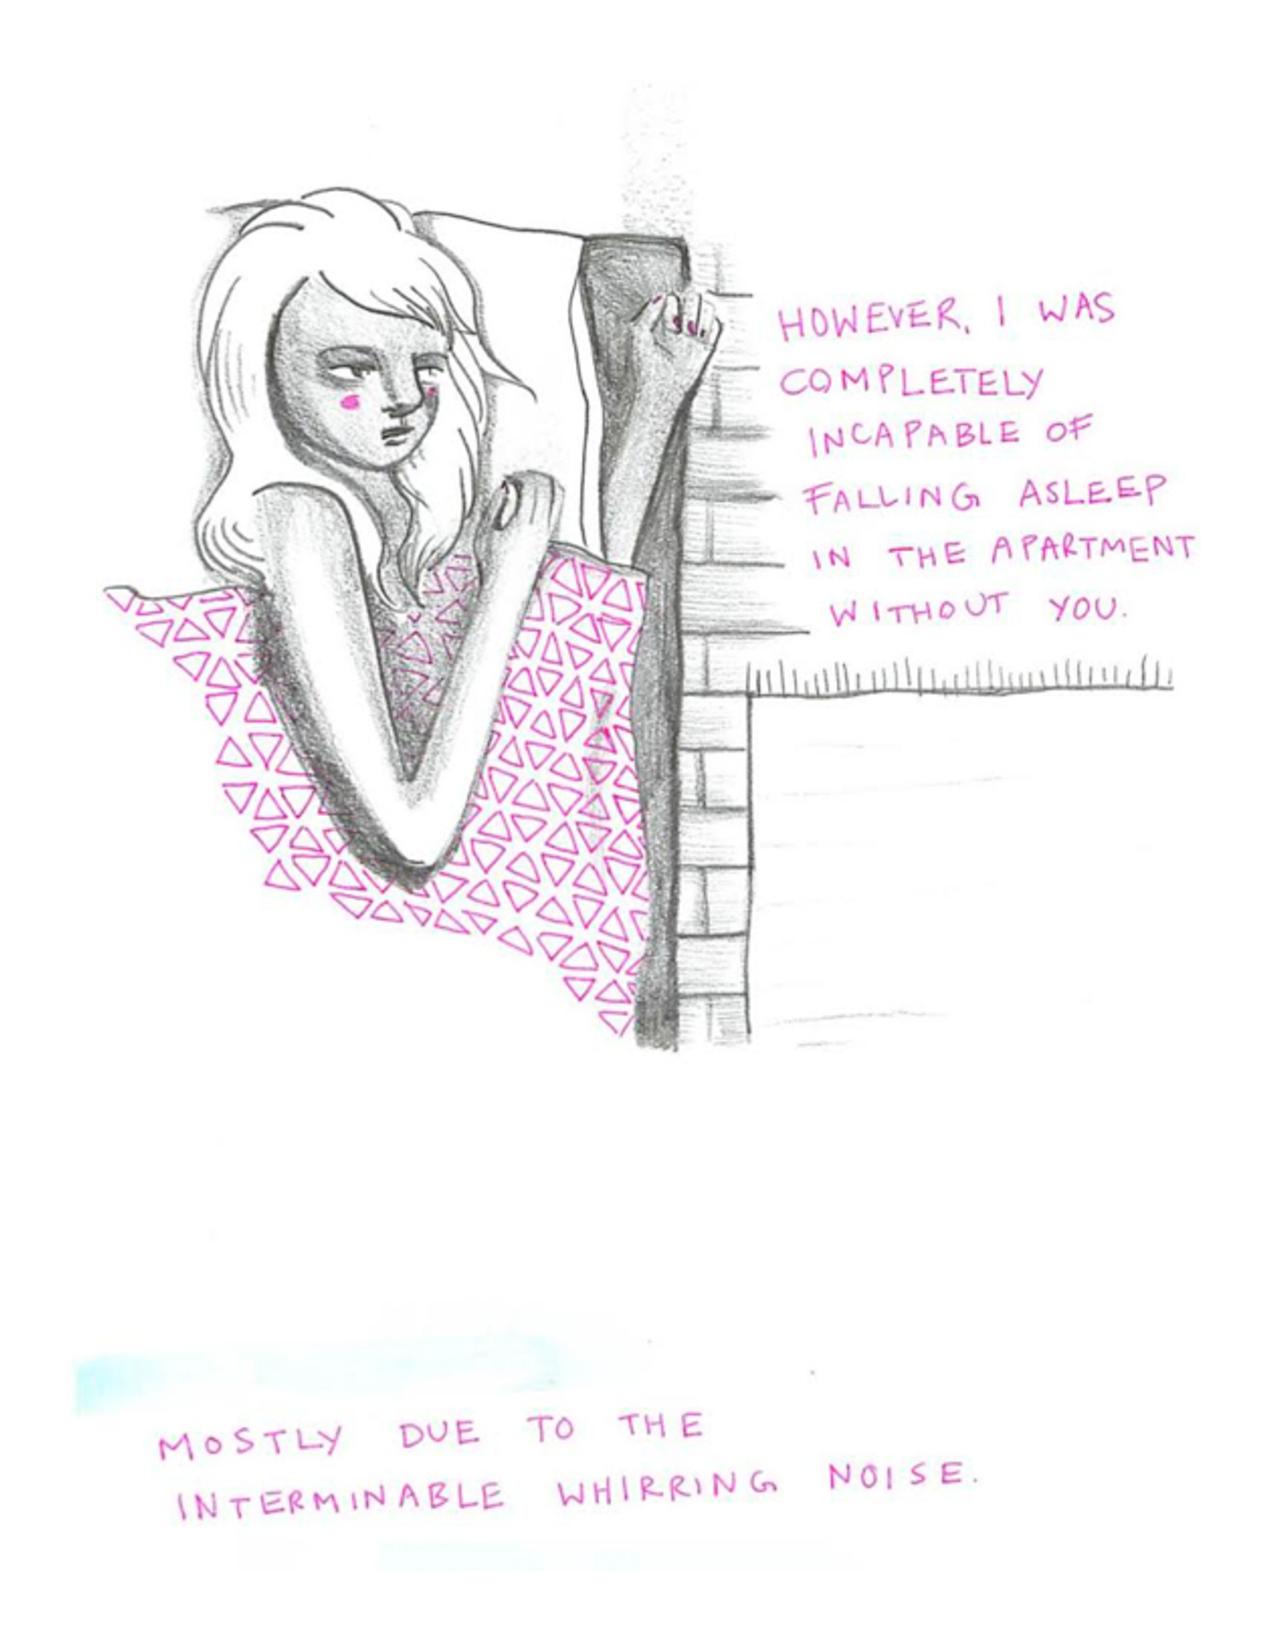 HOWEVER, I WAS
COMPLETELY
INCAPABLE OF
FALLING ASLEEP
IN THE APARTMENT
WITHOUT YOU.
MOSTLY DUE TO THE
INTERMINABLE WHIRRING NOISE.